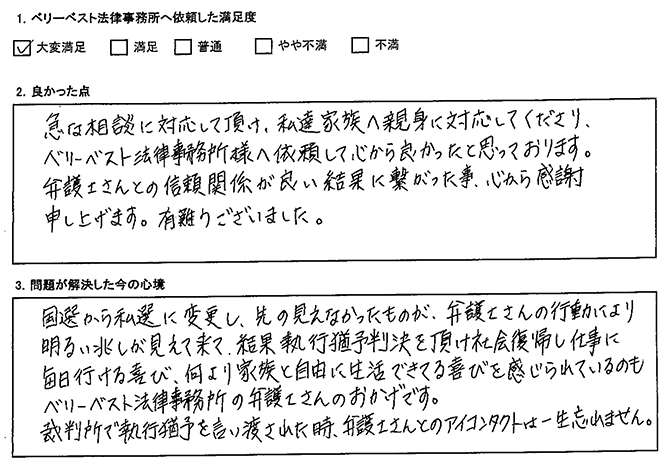 1. ベリーベスト法律事務所へ依頼した満足度
大変満足 満足 普通 やや不満 不満
2. 良かった点
急な相談に対応して頂け、私達家族へ親身に対応してくださり、
ベリーベスト法律事務所様へ依頼して心から良かったと思っております。
弁護士さんとの信頼関係が良い結果に繋がった事、心から感謝
申し上げます。有難うございました。
3. 問題が解決した今の心境
国選から私選に変更し、先の見えなかったものが、弁護士さんの行動により
明るい兆しが見えて来て、結果執行猶予判決を頂け社会復帰し仕事に
毎日行ける喜び、何より家族と自由に生活できてる喜びを感じられているのも
ベリーベスト法律事務所の弁護士さんのおかげです。
裁判所で執行猶予を言い渡された時、弁護士さんとのアイコンタクトは一生忘れません。